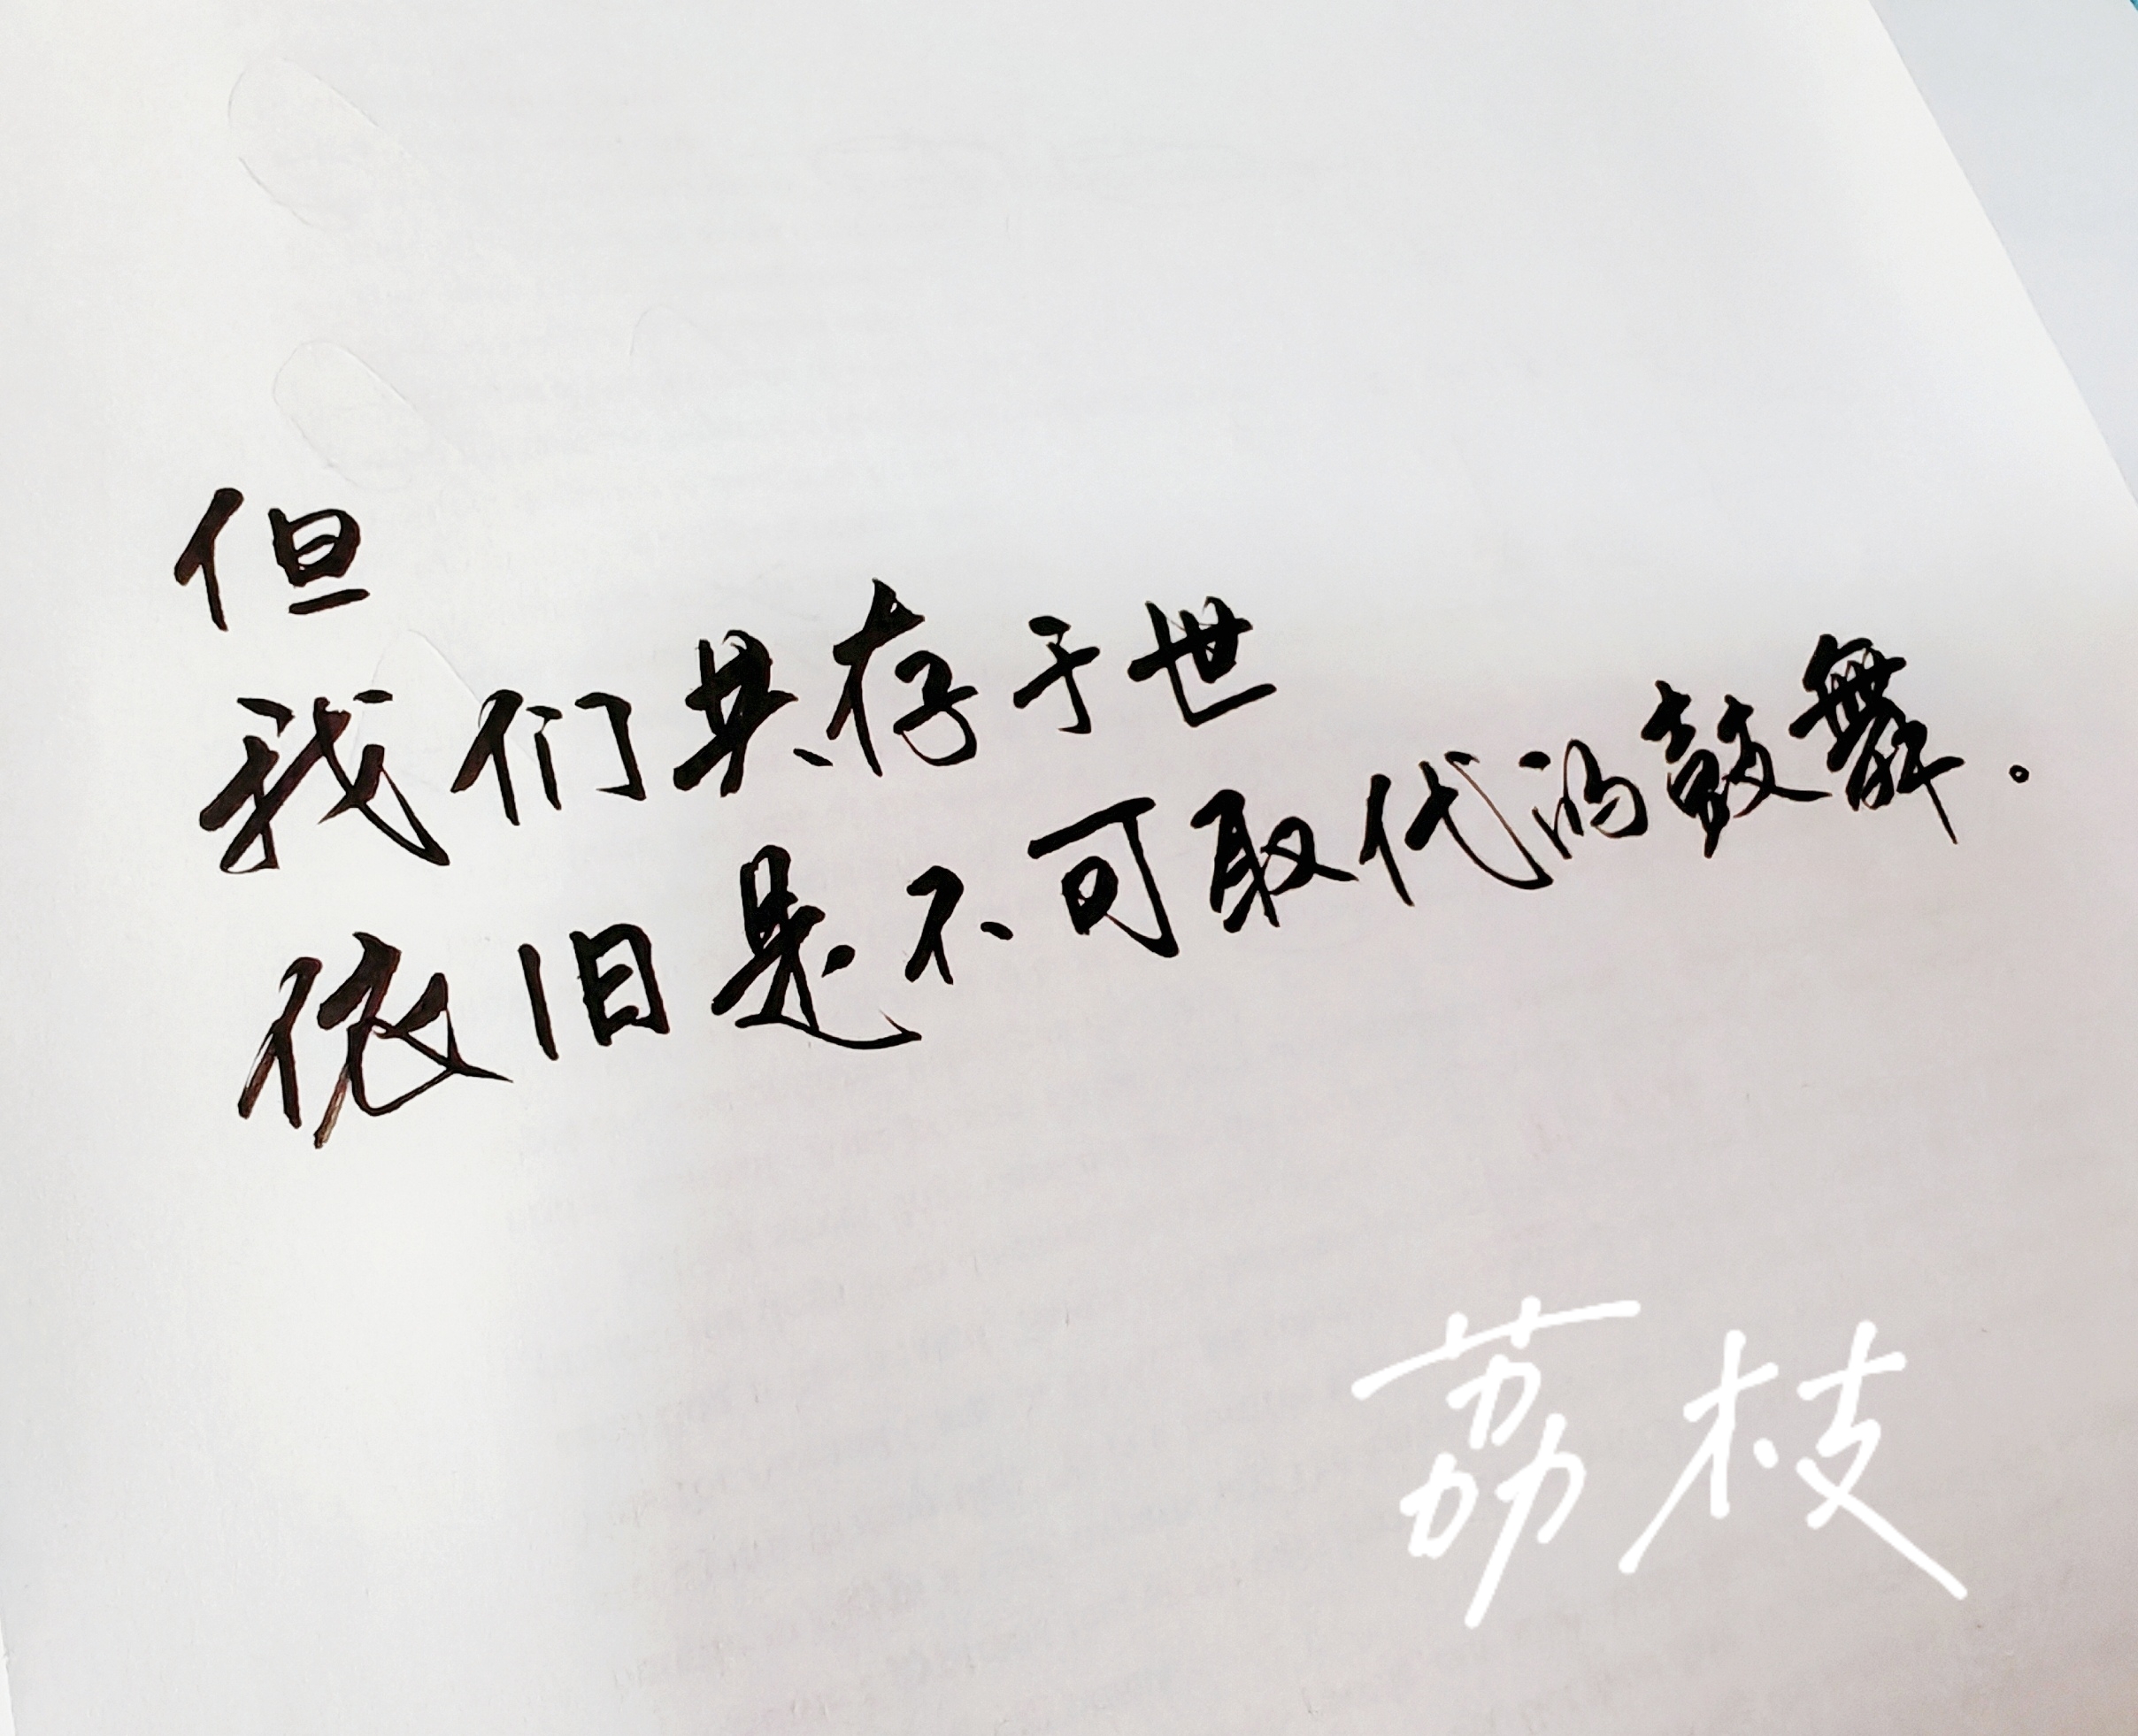 但
我们共存于世
依旧是不可取代的鼓舞。
荔枝